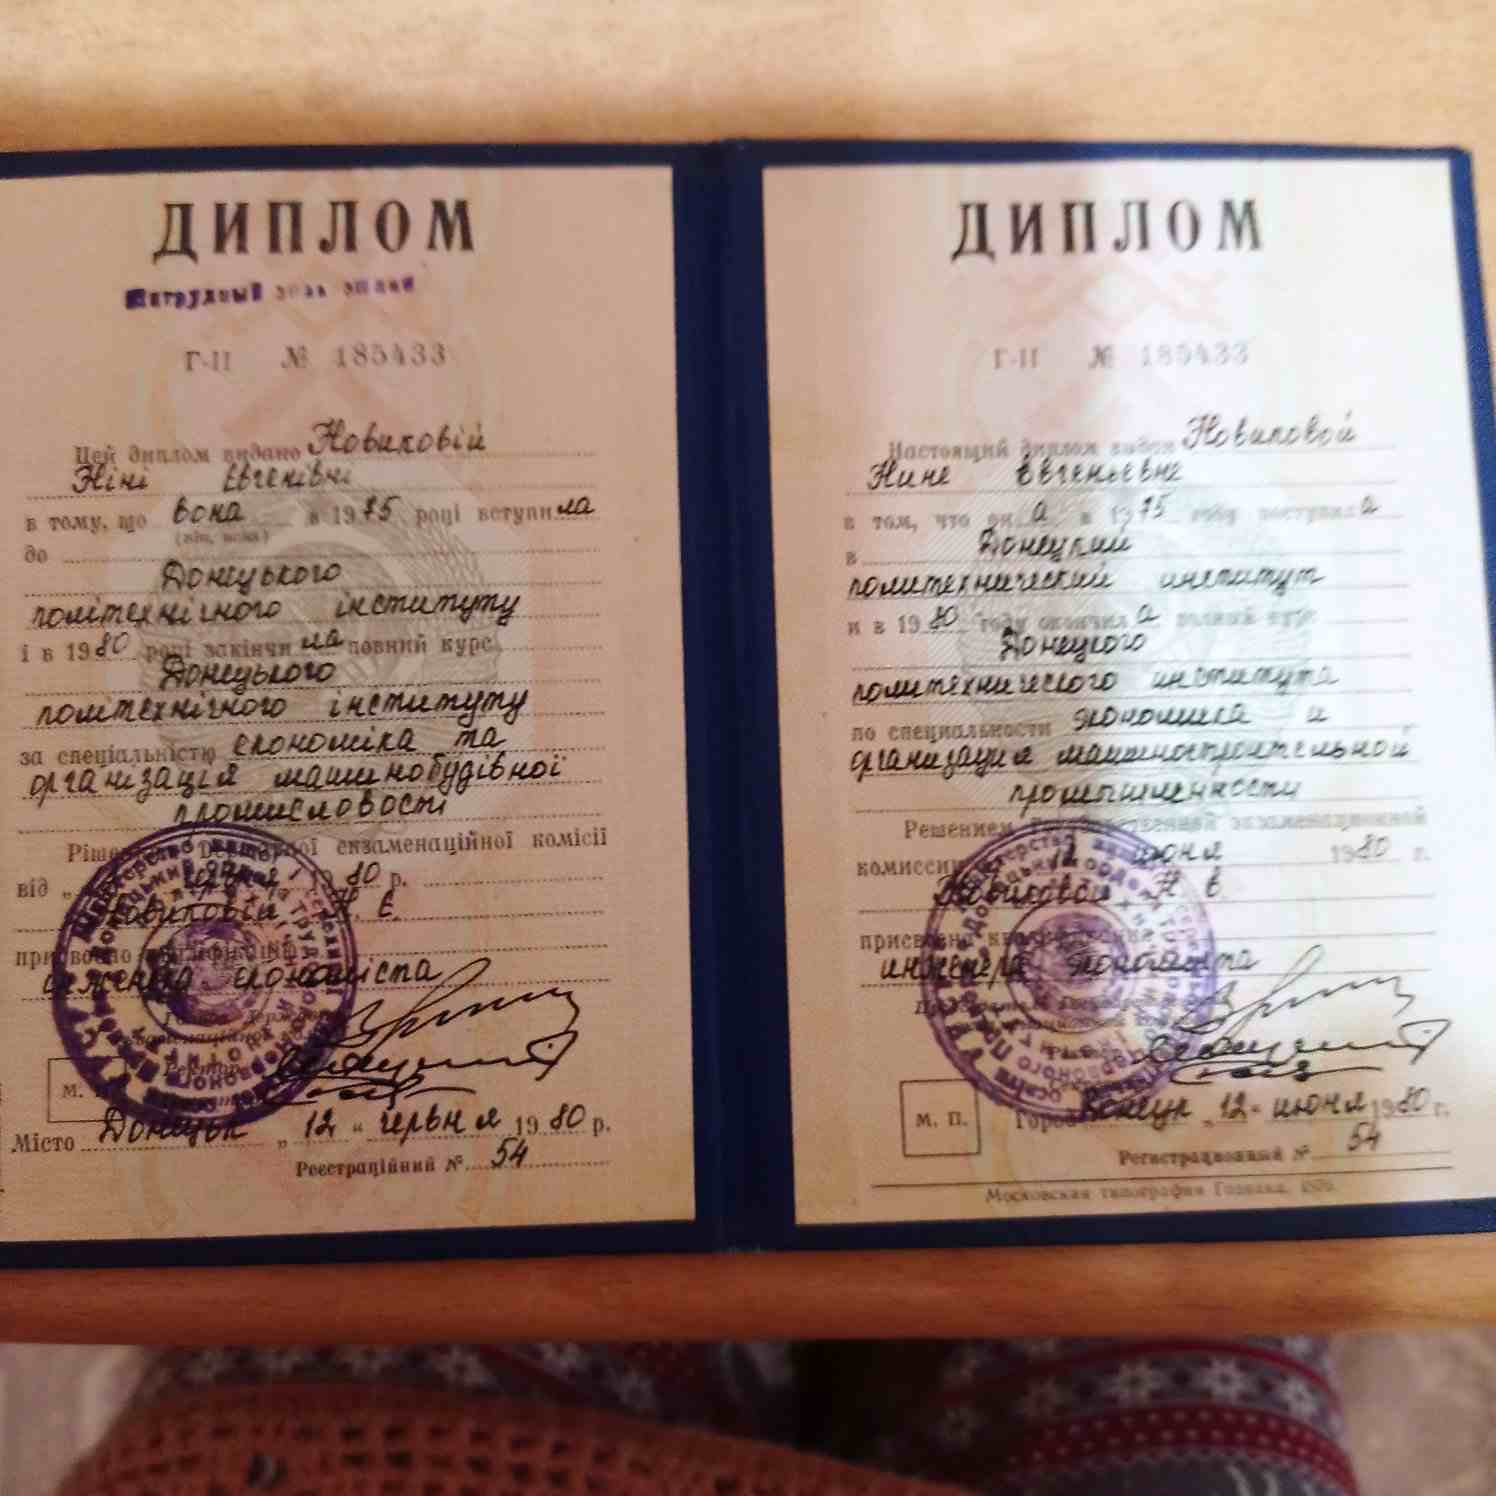 ДИПЛОМ
Нагрудный знак выдан
Г-II № 185433
Цей диплом видано Новиковій
Ніні Євгенівні
в тому, що вона в 1975 році вступила
(він, вона)
до
Донецького
політехнічного інституту
і в 1980 році закінчила повний курс
Донецького
політехнічного інституту
за спеціальністю економіка та
організація машинобудівної
промисловості
Рішенням Державної екзаменаційної комісії
від „ 1980 р.
Новиковій Н. Є.
присвоєно кваліфікацію
інженера економіста
Ректор
М.
Місто Донецьк „ 12 “ червня 1980 р.
Реєстраційний № 54
ДИПЛОМ
Г-II № 185433
Настоящий диплом выдан Новиковой
Нине Евгеньевне
в том, что она в 1975 году поступила
в Донецкий
политехнический институт
и в 1980 году окончила полный курс
Донецкого
политехнического института
по специальности экономика и
организация машиностроительной
промышленности
Решением Государственной экзаменационной
комиссии 12 июня 1980 г.
Новиковой Н. Е.
присвоена квалификация
инженера экономиста
М. П.
Город Донецк „12“ июня 1980 г.
Регистрационный № 54
Московская типография Гознака. 1979.